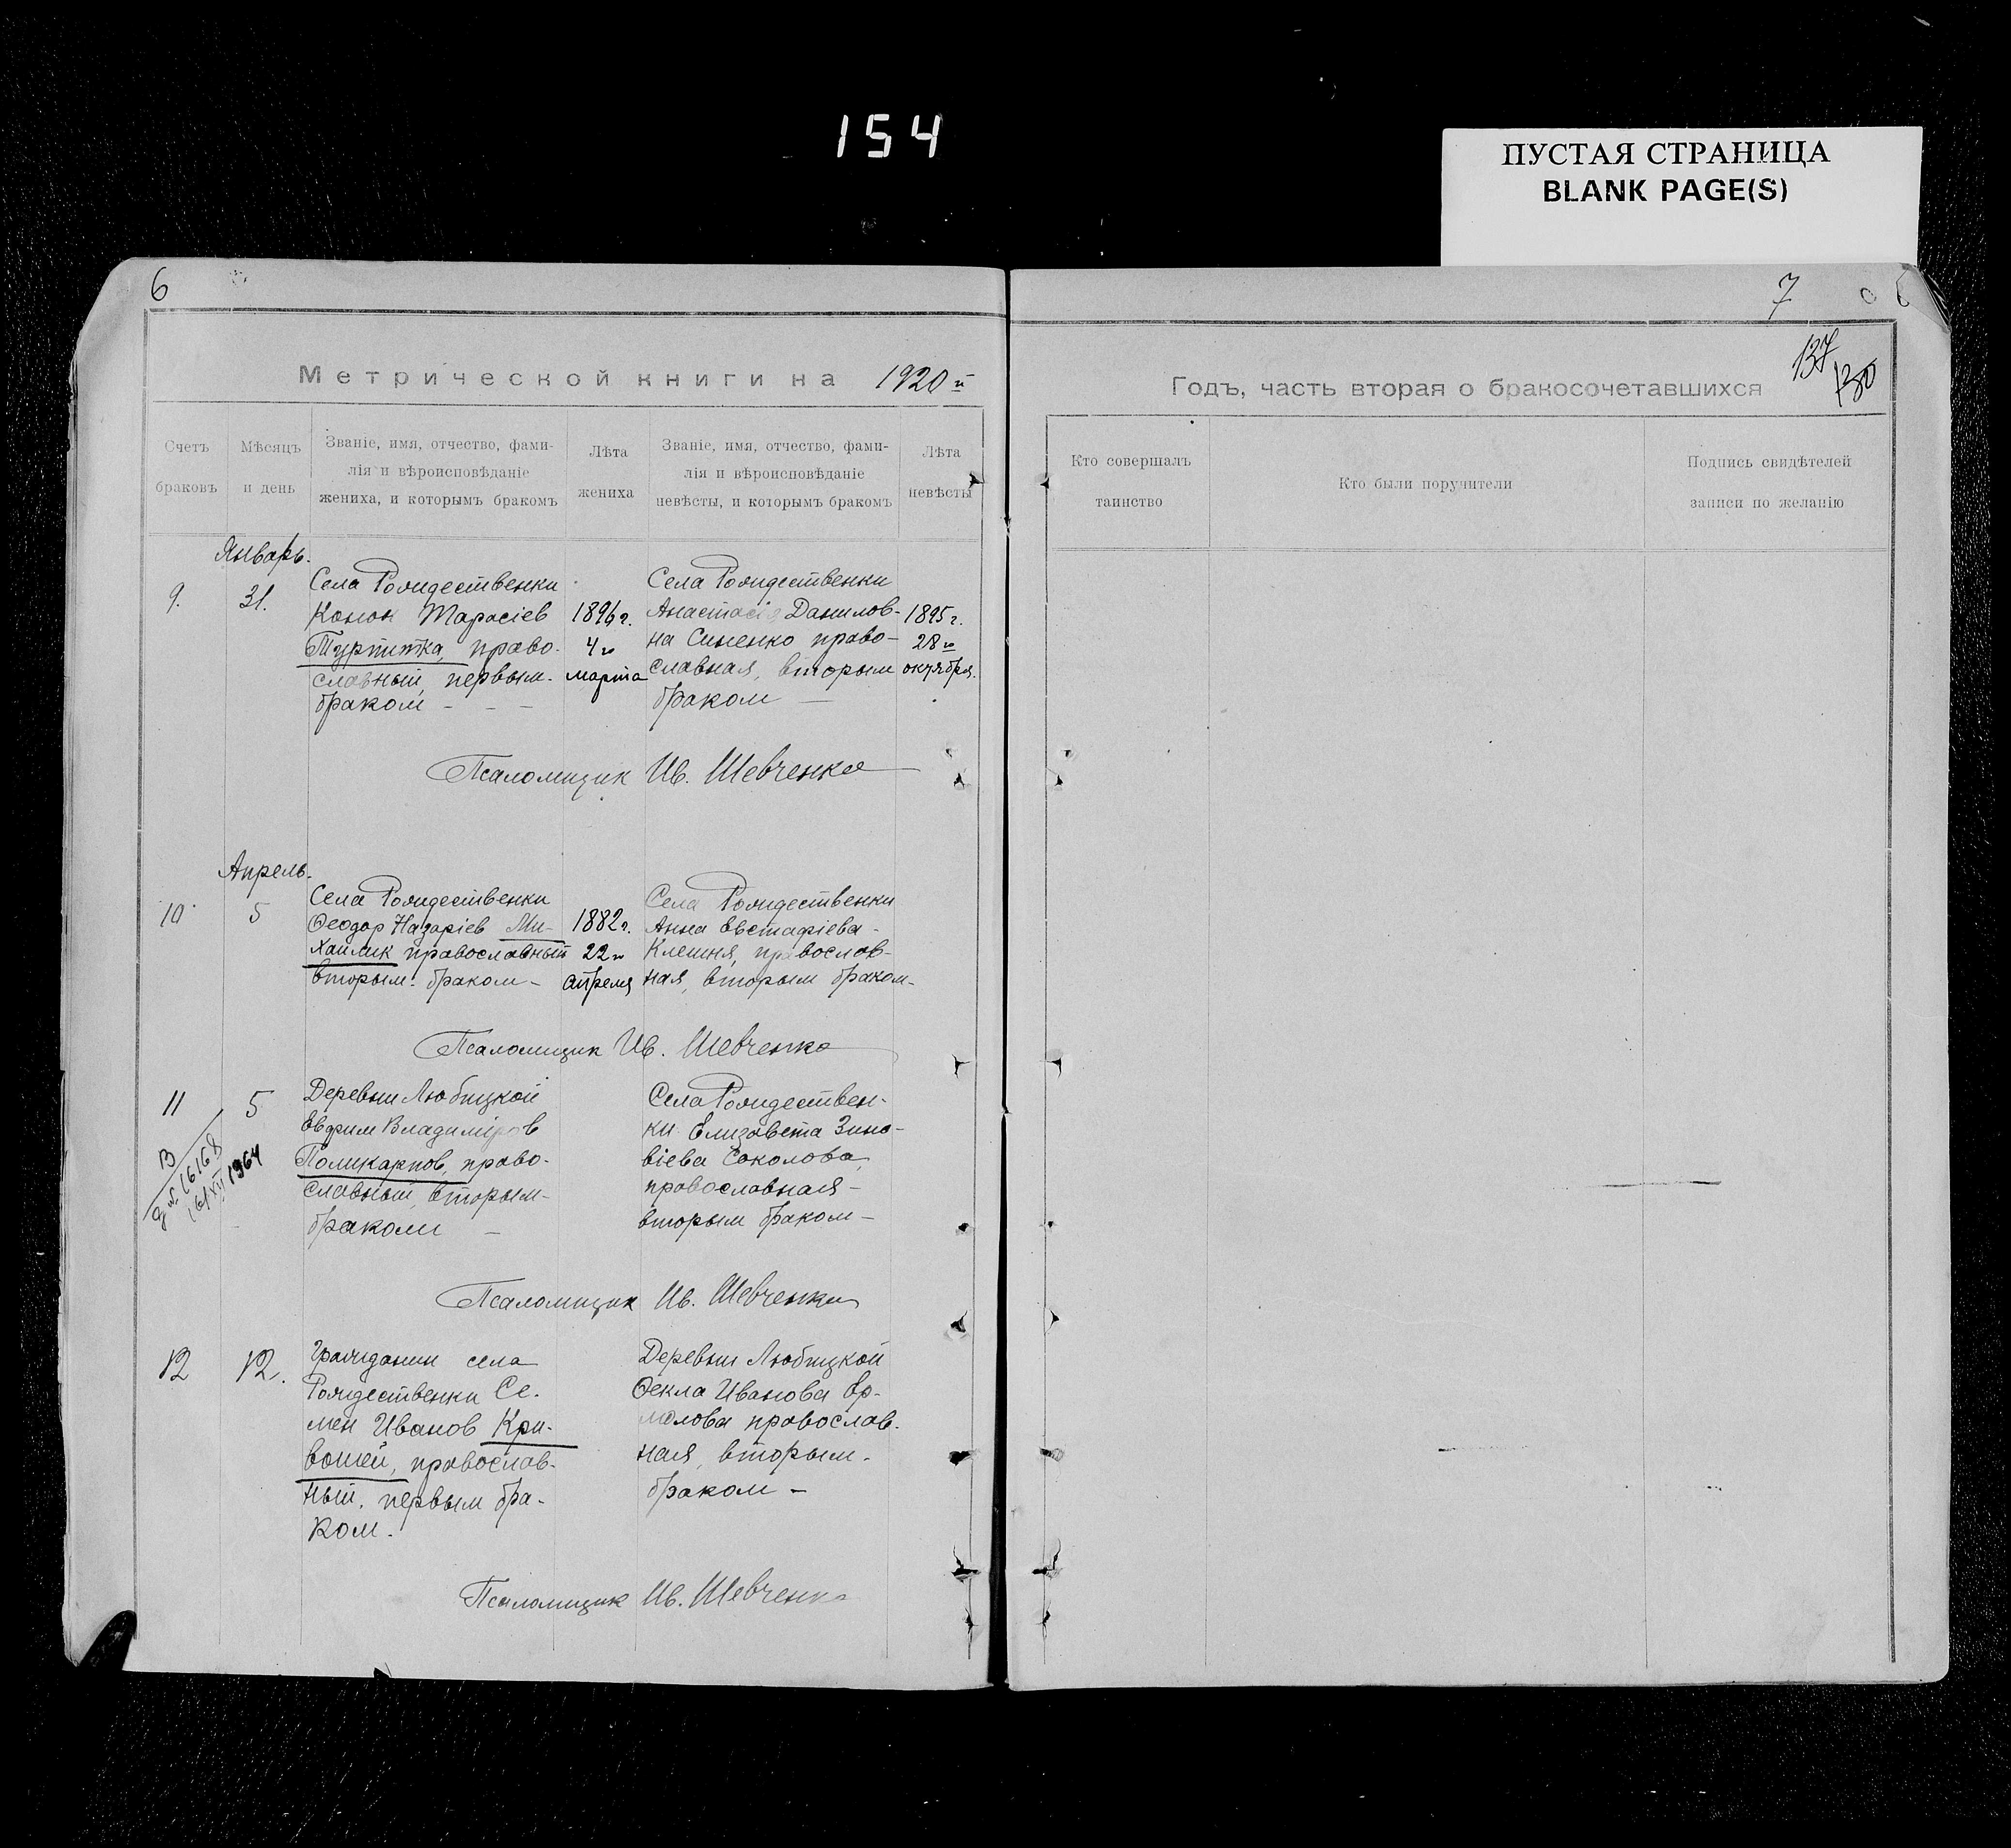 154
ПУСТАЯ СТРАНИЦА
BLANK PAGE(S)
6
Метрической книги на 1920й
Счетъ браковъ
Мѣсяцъ и день
Званіе, имя, отчество, фами-
лія и вѣроисповѣданіе
жениха, и которымъ бракомъ
Лѣта жениха
Званіе, имя, отчество, фами-
лія и вѣроисповѣданіе
невѣсты, и которымъ бракомъ
Лѣта невѣсты
Январь.
9.
31.
Села Рождественки
Конон Тарасіев
Турпитка, право-
славный, первым-
браком - - -
1896 г.
4го
марта
Села Рождественки
Анастасія Данилов-
на Синенко право-
славная, вторым
браком —
1895 г.
28го
октября.
Псаломщик Ив. Шевченко
Апрель.
10
5
Села Рождественки
Феодор Назаріев Ми-
хайлик православный
вторым браком -
1882 г.
22го
апреля
Села Рождественки
Анна Евстафіева -
Клешня, православ-
ная, вторым браком -
Псаломщик Ив. Шевченко
11
5
В
16168
1964
Деревни Любицкой
Евфим Владиміров
Поликарпов, право-
славный, вторым -
браком —
Села Рождествен-
ки Елизавета Зино-
віева Соколова,
православная -
вторым браком —
Псаломщик Ив. Шевченко
12
12.
Гражданин села
Рождественки Се-
мен Иванов Кри-
вошей, православ-
ный, первым бра-
ком.
Деревни Любицкой
Фекла Иванова Ер-
молова православ-
ная, вторым -
браком —
Псаломщик Ив. Шевченко
7
137
130
Годъ, часть вторая о бракосочетавшихся
Кто совершалъ таинство
Кто были поручители
Подпись свидѣтелей
записи по желанію